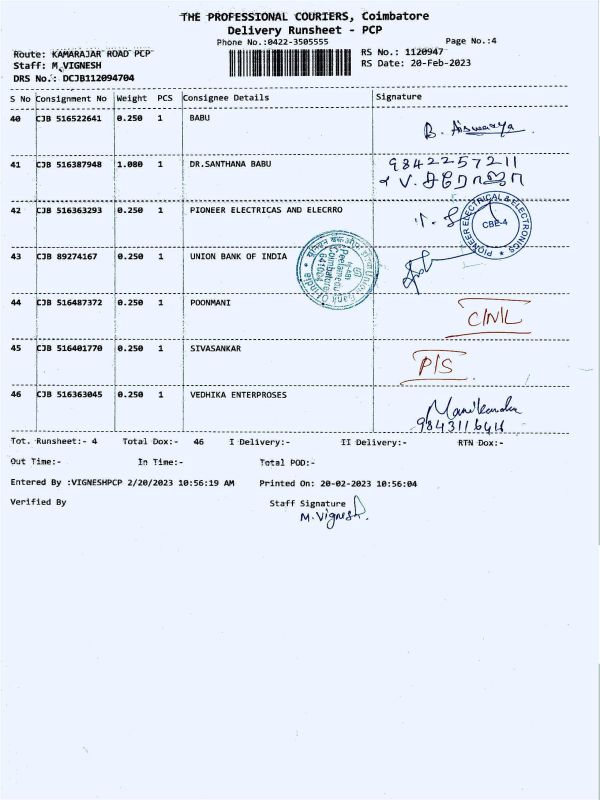 THE PROFESSIONAL COURIERS, Coimbatore
Delivery Runsheet - PCP
Phone No.:0422-3505555
Page No.:4
Route: KAMARAJAR ROAD PCP
RS No.: 1120947
Staff: M.VIGNESH
RS Date: 20-Feb-2023
DRS No.: DCJB112094704
S No Consignment No Weight PCS Consignee Details Signature
40 CJB 516522641 0.250 1 BABU B. Aiswarya
41 CJB 516387948 1.080 1 DR.SANTHANA BABU 9842257211
V.
42 CJB 516363293 0.250 1 PIONEER ELECTRICAS AND ELECRRO
PIONEER ELECTRICAL & ELECTRONICS CBE-4
43 CJB 89274167 0.250 1 UNION BANK OF INDIA
Union Bank Of India Peelamedu Coimbatore
44 CJB 516487372 0.250 1 POONMANI C/N/L
45 CJB 516401770 0.250 1 SIVASANKAR P/S
46 CJB 516363045 0.250 1 VEDHIKA ENTERPROSES Manikandan
Tot. Runsheet:- 4 Total Dox:- 46 I Delivery:- II Delivery:- RTN Dox:-
Out Time:- In Time:- Total POD:-
Entered By :VIGNESHPCP 2/20/2023 10:56:19 AM Printed On: 20-02-2023 10:56:04
Verified By Staff Signature
M.Vignesh.